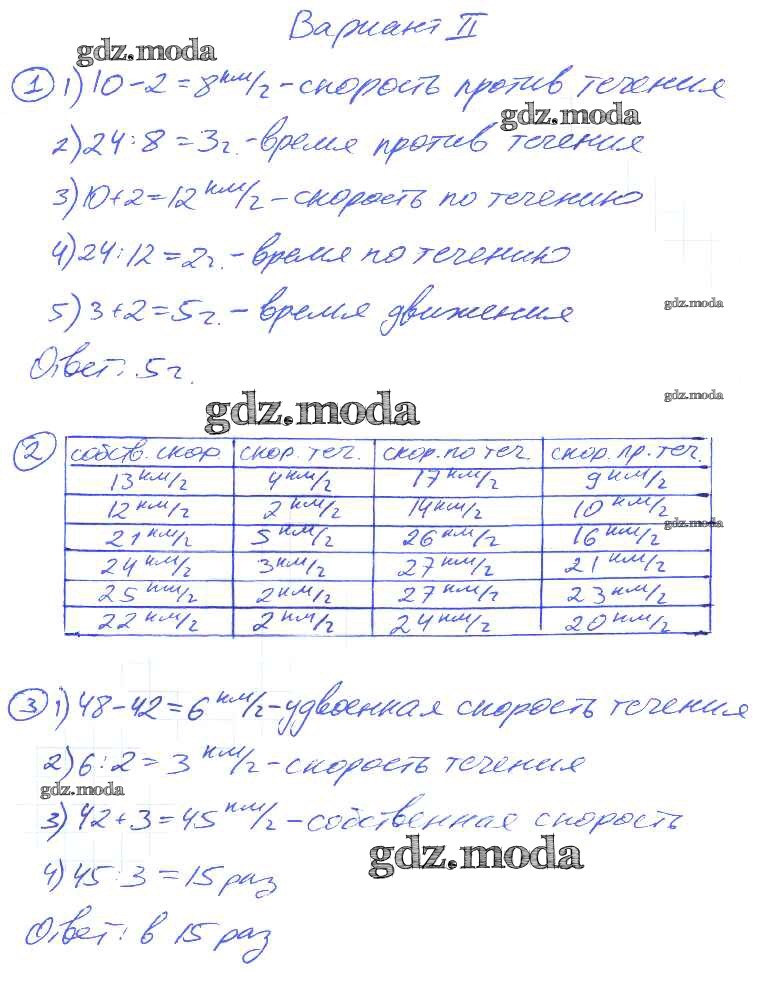 Вариант II
gdz.moda
1 1) 10 - 2 = 8 км/г - скорость против течения
gdz.moda
2) 24 : 8 = 3 г. - время против течения
3) 10 + 2 = 12 км/г - скорость по течению
4) 24 : 12 = 2 г. - время по течению
5) 3 + 2 = 5 г. - время движения
gdz.moda
Ответ: 5 г.
gdz.moda
gdz.moda
2 собств. скор. скор. теч. скор. по теч. скор. пр. теч.
13 км/г 4 км/г 17 км/г 9 км/г
12 км/г 2 км/г 14 км/г 10 км/г
gdz.moda
21 км/г 5 км/г 26 км/г 16 км/г
24 км/г 3 км/г 27 км/г 21 км/г
25 км/г 2 км/г 27 км/г 23 км/г
22 км/г 2 км/г 24 км/г 20 км/г
3 1) 48 - 42 = 6 км/г - удвоенная скорость течения
2) 6 : 2 = 3 км/г - скорость течения
gdz.moda
3) 42 + 3 = 45 км/г - собственная скорость
gdz.moda
4) 45 : 3 = 15 раз
Ответ: в 15 раз